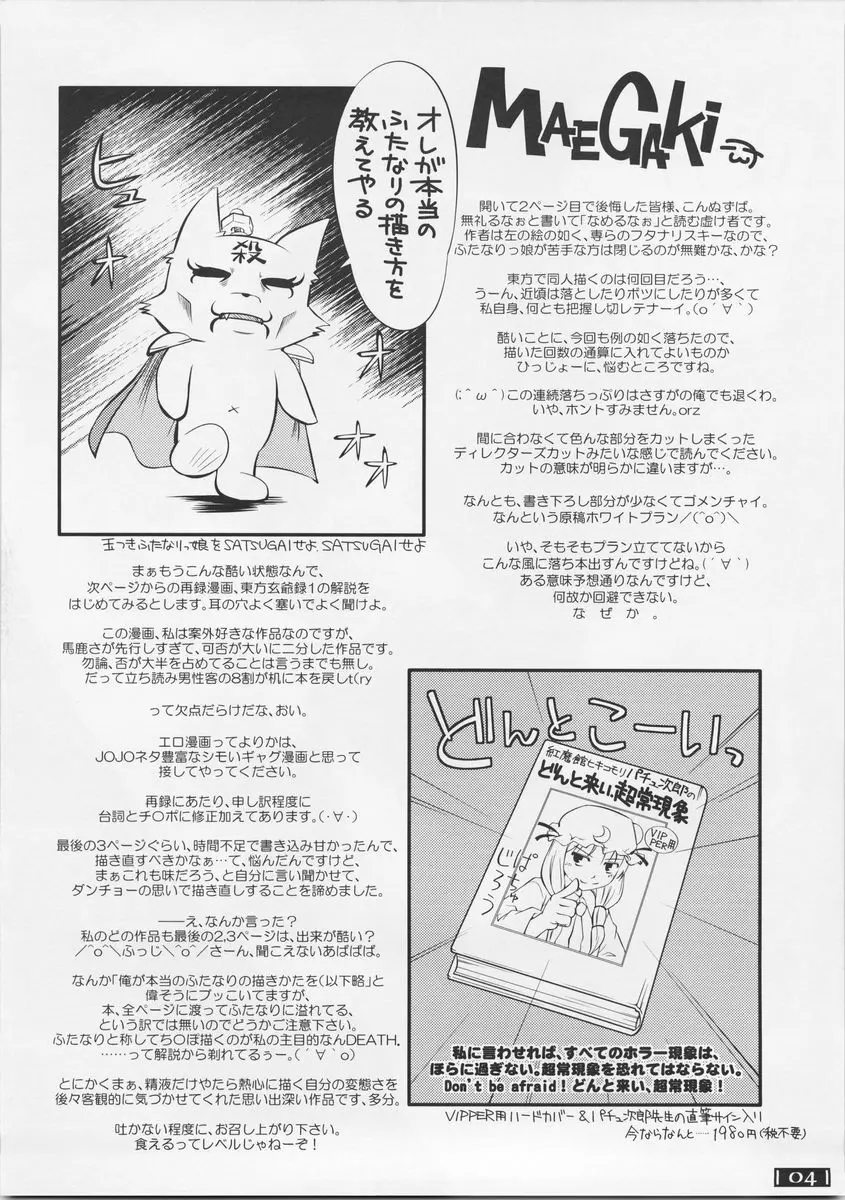 MAEGAKi
開いて2ページ目で後悔した皆様、こんぬずば。
無礼るなぉと書いて「なめるなぉ」と読む虚け者です。
作者は左の絵の如く、専らのフタナリスキーなので、
ふたなりっ娘が苦手な方は閉じるのが無難かな、かな?
東方で同人描くのは何回目だろう…、
うーん、近頃は落としたりボツにしたりが多くて
私自身、何とも把握し切レテナーイ。(o´∀`)
酷いことに、今回も例の如く落ちたので、
描いた回数の通算に入れてよいものか
ひっじょーに、悩むところですね。
(;^ω^)この連続落ちっぷりはさすがの俺でも退くわ。
いや、ホントすみません。orz
間に合わなくて色んな部分をカットしまくった
ディレクターズカットみたいな感じで読んでください。
カットの意味が明らかに違いますが…。
なんとも、書き下ろし部分が少なくてゴメンチャイ。
なんという原稿ホワイトプラン/(^o^)\
いや、そもそもプラン立ててないから
こんな風に落ち本出すんですけどね。(´∀`)
ある意味予想通りなんですけど、
何故か回避できない。
な ぜ か 。
オレが本当の
ふたなりの描き方を
教えてやる
ヒュ
オオオ
殺
玉つきふたなりっ娘をSATSUGAIせよ、SATSUGAIせよ
まぁもうこんな酷い状態なんで、
次ページからの再録漫画、東方玄爺録1の解説を
はじめてみるとします。耳の穴よく塞いでよく聞けよ。
この漫画、私は案外好きな作品なのですが、
馬鹿さが先行しすぎて、可否が大いに二分した作品です。
勿論、否が大半を占めてることは言うまでも無し。
だって立ち読み男性客の8割が机に本を戻しt(ry
って欠点だらけだな、おい。
エロ漫画ってよりかは、
JOJOネタ豊富なシモいギャグ漫画と思って
接してやってください。
再録にあたり、申し訳程度に
台詞とチ○ポに修正加えてあります。(・∀・)
最後の3ページぐらい、時間不足で書き込み甘かったんで、
描き直すべきかなぁ…て、悩んだんですけど、
まぁこれも味だろう、と自分に言い聞かせて、
ダンチョーの思いで描き直しすることを諦めました。
――え、なんか言った?
私のどの作品も最後の2,3ページは、出来が酷い?
/^o^\ふっじ\^o^/さーん、聞こえないあばばば。
なんか「俺が本当のふたなりの描きかたを(以下略)」と
偉そうにブッこいてますが、
本、全ページに渡ってふたなりに溢れてる、
という訳では無いのでどうかご注意下さい。
ふたなりと称してち○ぽ描くのが私の主目的なんDEATH.
……って解説から剃れてるぅー。(´∀`o)
とにかくまぁ、精液だけやたら熱心に描く自分の変態さを
後々客観的に気づかせてくれた思い出深い作品です、多分。
吐かない程度に、お召し上がり下さい。
食えるってレベルじゃねーぞ!
どんとこーいっ
紅魔館ヒキコモリパチュ次郎の
どんと来い、超常現象
VIP
PER用
ぱちゅ
じろう
私に言わせれば、すべてのホラー現象は、
ほらに過ぎない。超常現象を恐れてはならない。
Don't be afraid!どんと来い、超常現象!
VIPPER用ハードカバー&パチュ次郎先生の直筆サイン入り
今ならなんと……1980円(税不要)
04